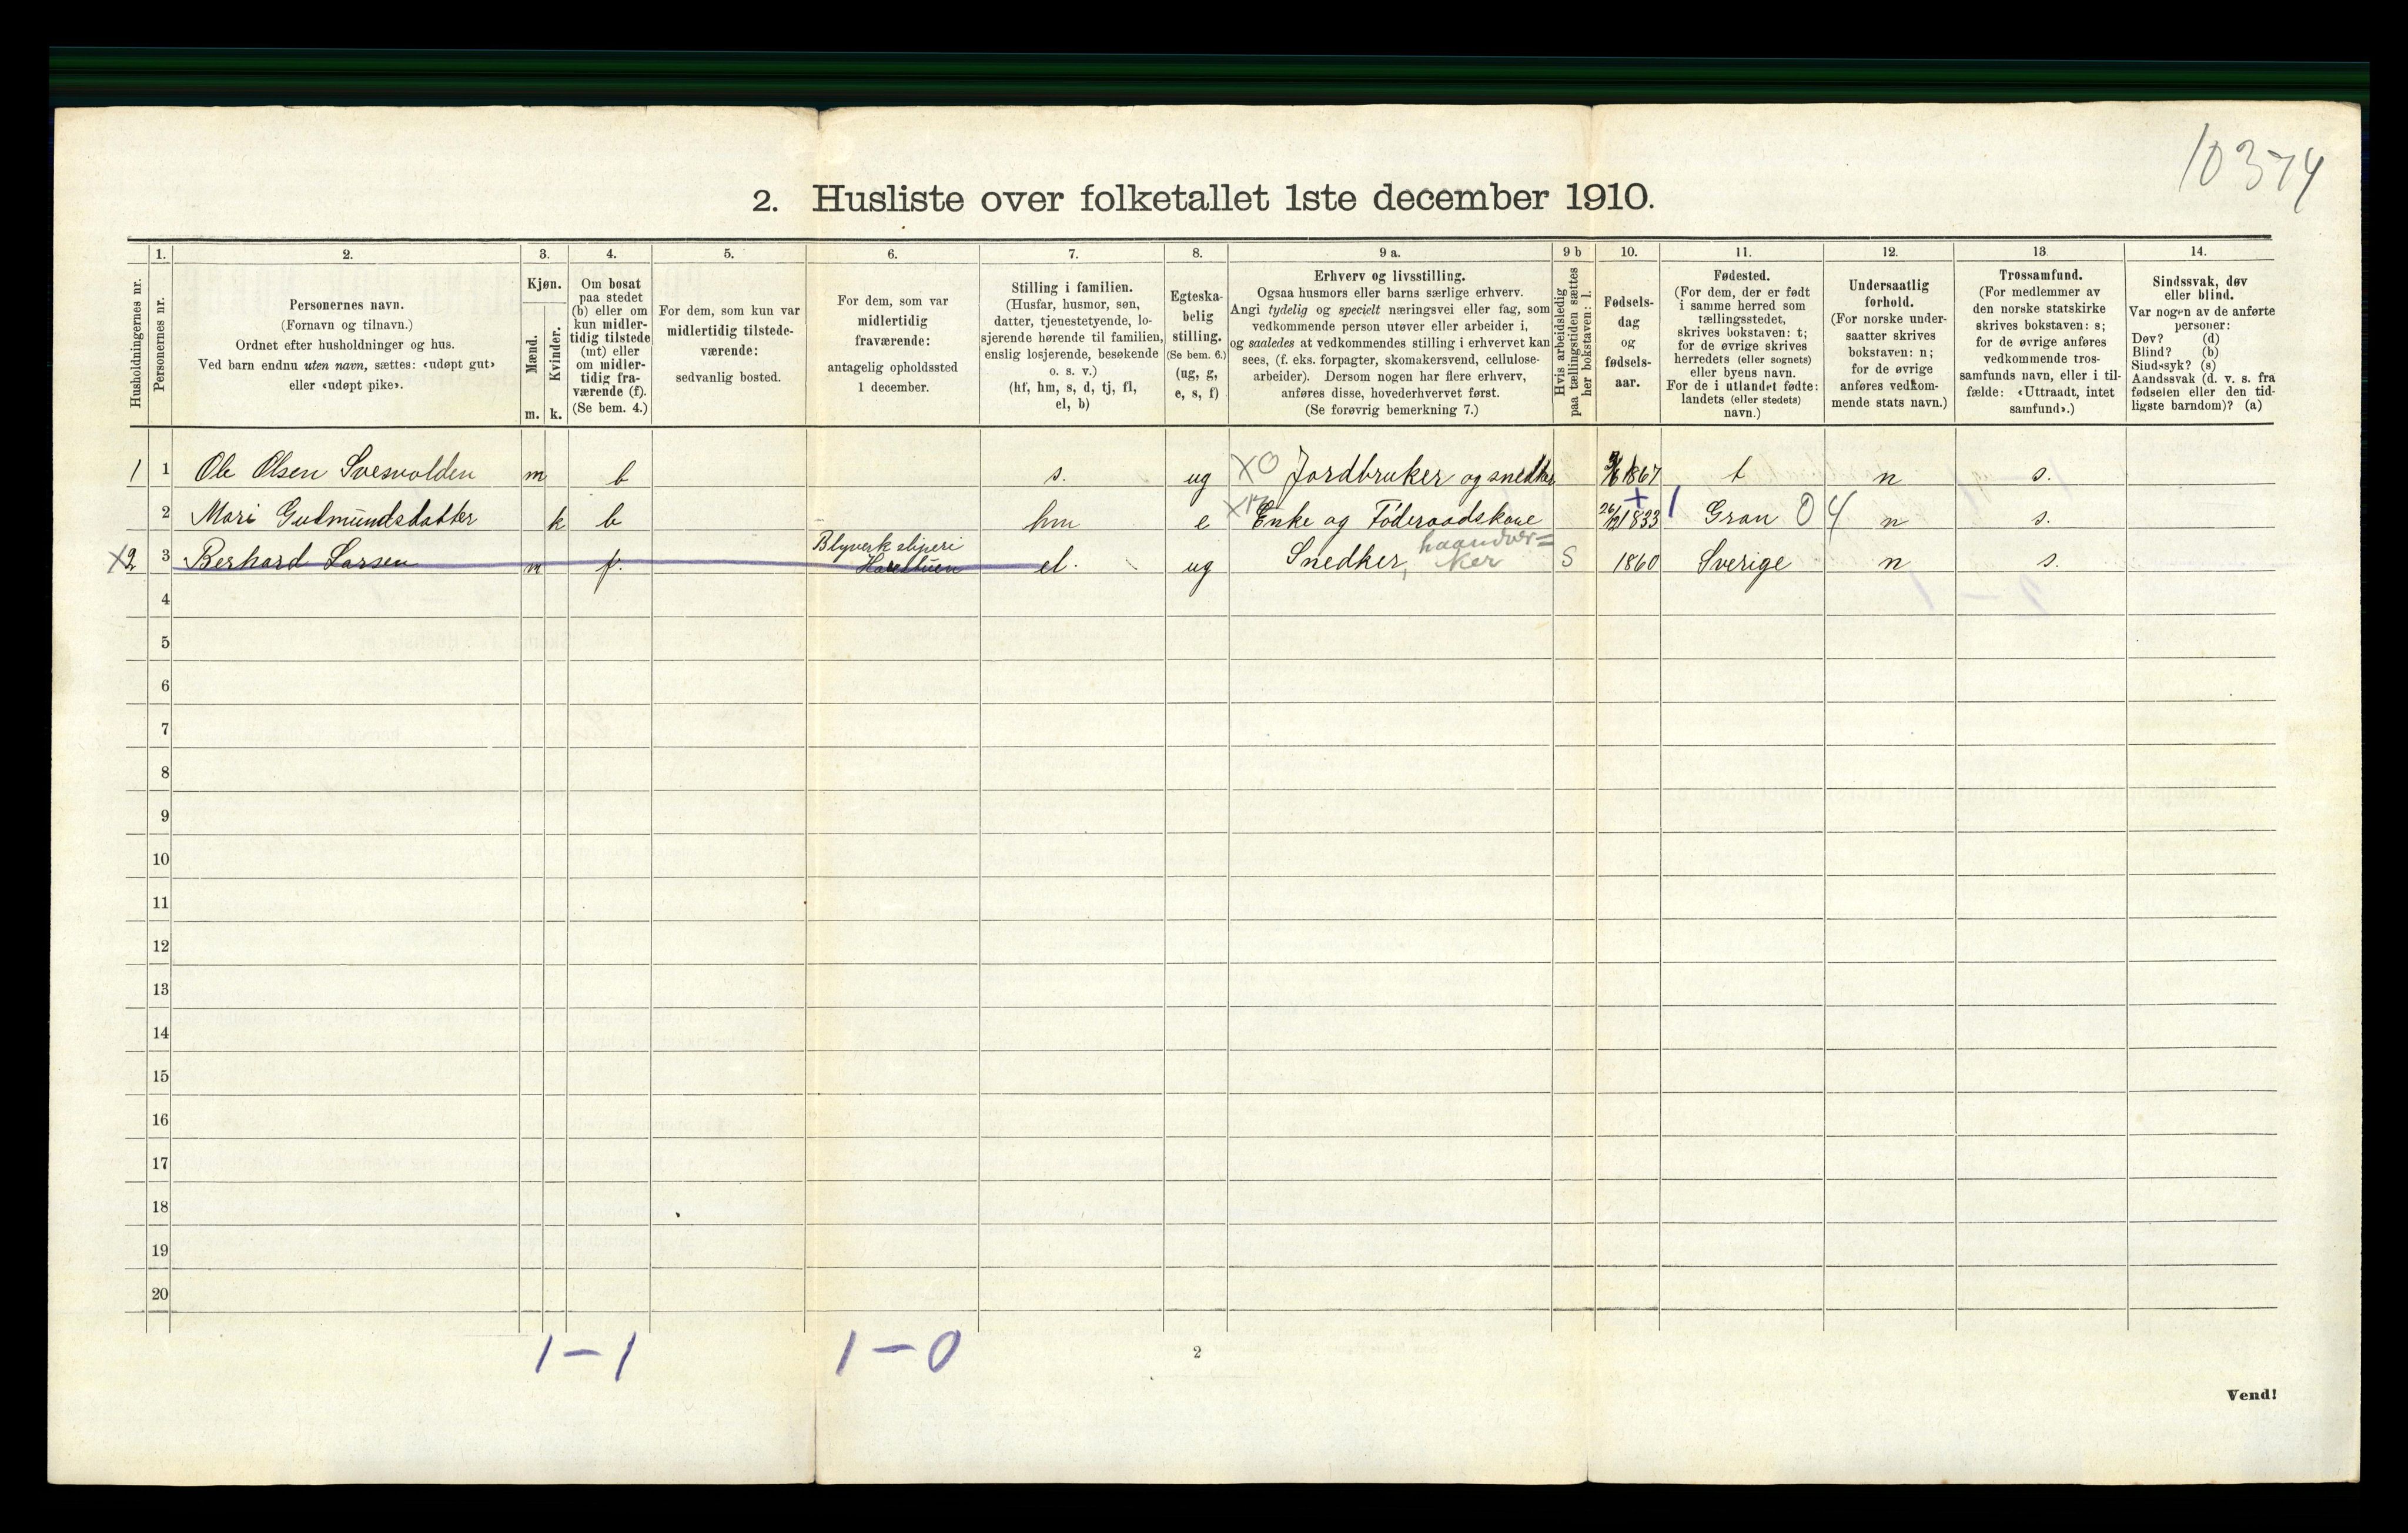 10374
2. Husliste over folketallet 1ste december 1910.
Husholdningernes nr.
1.
Personernes nr.
2.
Personernes navn.
(Fornavn og tilnavn.)
Ordnet efter husholdninger og hus.
Ved barn endnu uten navn, sættes: «udøpt gut»
eller «udøpt pike».
3.
Kjøn.
Mænd.
Kvinder.
m. k.
4.
Om bosat
paa stedet
(b) eller om
kun midler-
tidig tilstede
(mt) eller
om midler-
tidig fra-
værende (f).
(Se bem. 4.)
5.
For dem, som kun var
midlertidig tilstede-
værende:
sedvanlig bosted.
6.
For dem, som var
midlertidig
fraværende:
antagelig opholdssted
1 december.
7.
Stilling i familien.
(Husfar, husmor, søn,
datter, tjenestetyende, lo-
sjerende hørende til familien,
enslig losjerende, besøkende
o. s. v.)
(hf, hm, s, d, tj, fl,
el, b)
8.
Egteska-
belig
stilling.
(Se bem. 6.)
(ug, g,
e, s, f)
9 a.
Erhverv og livsstilling.
Ogsaa husmors eller barns særlige erhverv.
Angi tydelig og specielt næringsvei eller fag, som
vedkommende person utøver eller arbeider i,
og saaledes at vedkommendes stilling i erhvervet kan
sees, (f. eks. forpagter, skomakersvend, cellulose-
arbeider). Dersom nogen har flere erhverv,
anføres disse, hovederhvervet først.
(Se forøvrig bemerkning 7.)
9 b
Hvis arbeidsledig
paa tællingstiden sættes
her bokstaven: l.
10.
Fødsels-
dag
og
fødsels-
aar.
11.
Fødested.
(For dem, der er født
i samme herred som
tællingsstedet,
skrives bokstaven: t;
for de øvrige skrives
herredets (eller sognets)
eller byens navn.
For de i utlandet fødte:
landets (eller stedets)
navn.)
12.
Undersaatlig
forhold.
(For norske under-
saatter skrives
bokstaven: n;
for de øvrige
anføres vedkom-
mende stats navn.)
13.
Trossamfund.
(For medlemmer av
den norske statskirke
skrives bokstaven: s;
for de øvrige anføres
vedkommende tros-
samfunds navn, eller i til-
fælde: «Uttraadt, intet
samfund».)
14.
Sindssvak, døv
eller blind.
Var nogen av de anførte
personer:
Døv? (d)
Blind? (b)
Sindssyk? (s)
Aandssvak (d. v. s. fra
fødselen eller den tid-
ligste barndom)? (a)
1 1 Ole Olsen Svesvolden m b s. ug XO Jordbruker og snedker 1867 t n s.
2 Mari Gudmundsdatter k b hm e Enke og Føderaadskone 26/12 1833 Gran 04 n s.
X2 3 Berhard Larsen m f. Blyverk sliperi Harestuen el. ug Snedker, haandver=ker S 1860 Sverige n s.
4
5
6
7
8
9
10
11
12
13
14
15
16
17
18
19
20
1-1 1-0
2
Vend!